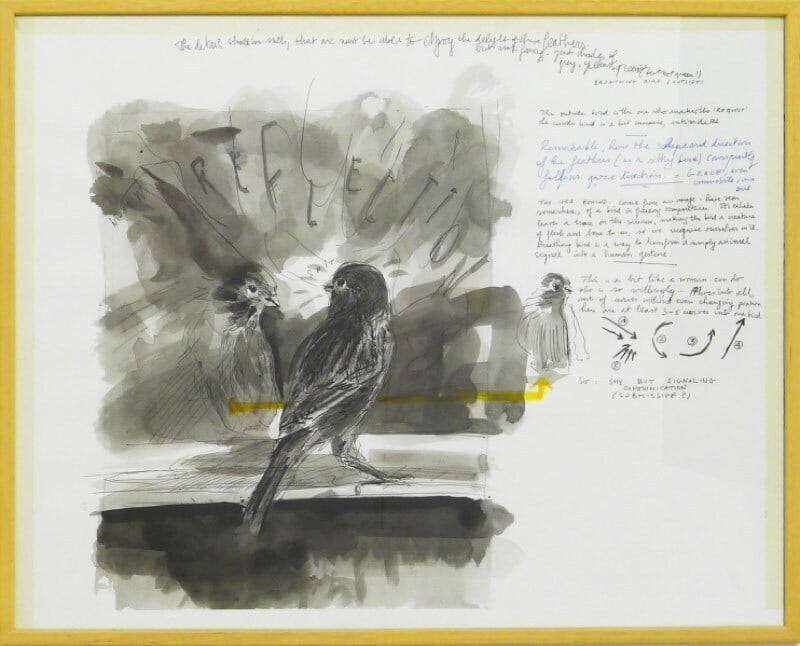 The detail should be such, that one must be able to enjoy the delights of the feathers
but not fancy. just shades of
grey. yellow. green (but not green!)
BREATHING BIRD (OUTLINES)
REFLECTION
The outside bird is the one who makes the 'request'
the inside bird is a bit unsure, intrinde
Remarkable, how the shape and direction
of the feathers (in a silky bird) constantly
follows gaze direction. = GRADE, even
immobile, in a
bird
THE IDEA BEHIND: comes from an image I have seen
somewhere, of a bird in freezing temperature. It's exhale
leaves a trace on the window, making the bird a creature
of flesh and bone to us, so we recognise ourselves in it.
Breathing bird is a way to transform a simply animal
signal into a human gesture.
This is a bit like a woman can do
also is so willingly. Moves into all
sort of curves without even changing position
here are at least 3-5 curves into one bird
1
2
3
4
5
SO: SHY BUT SIGNALING
COMMUNICATION
(SUBMISSIVE?)